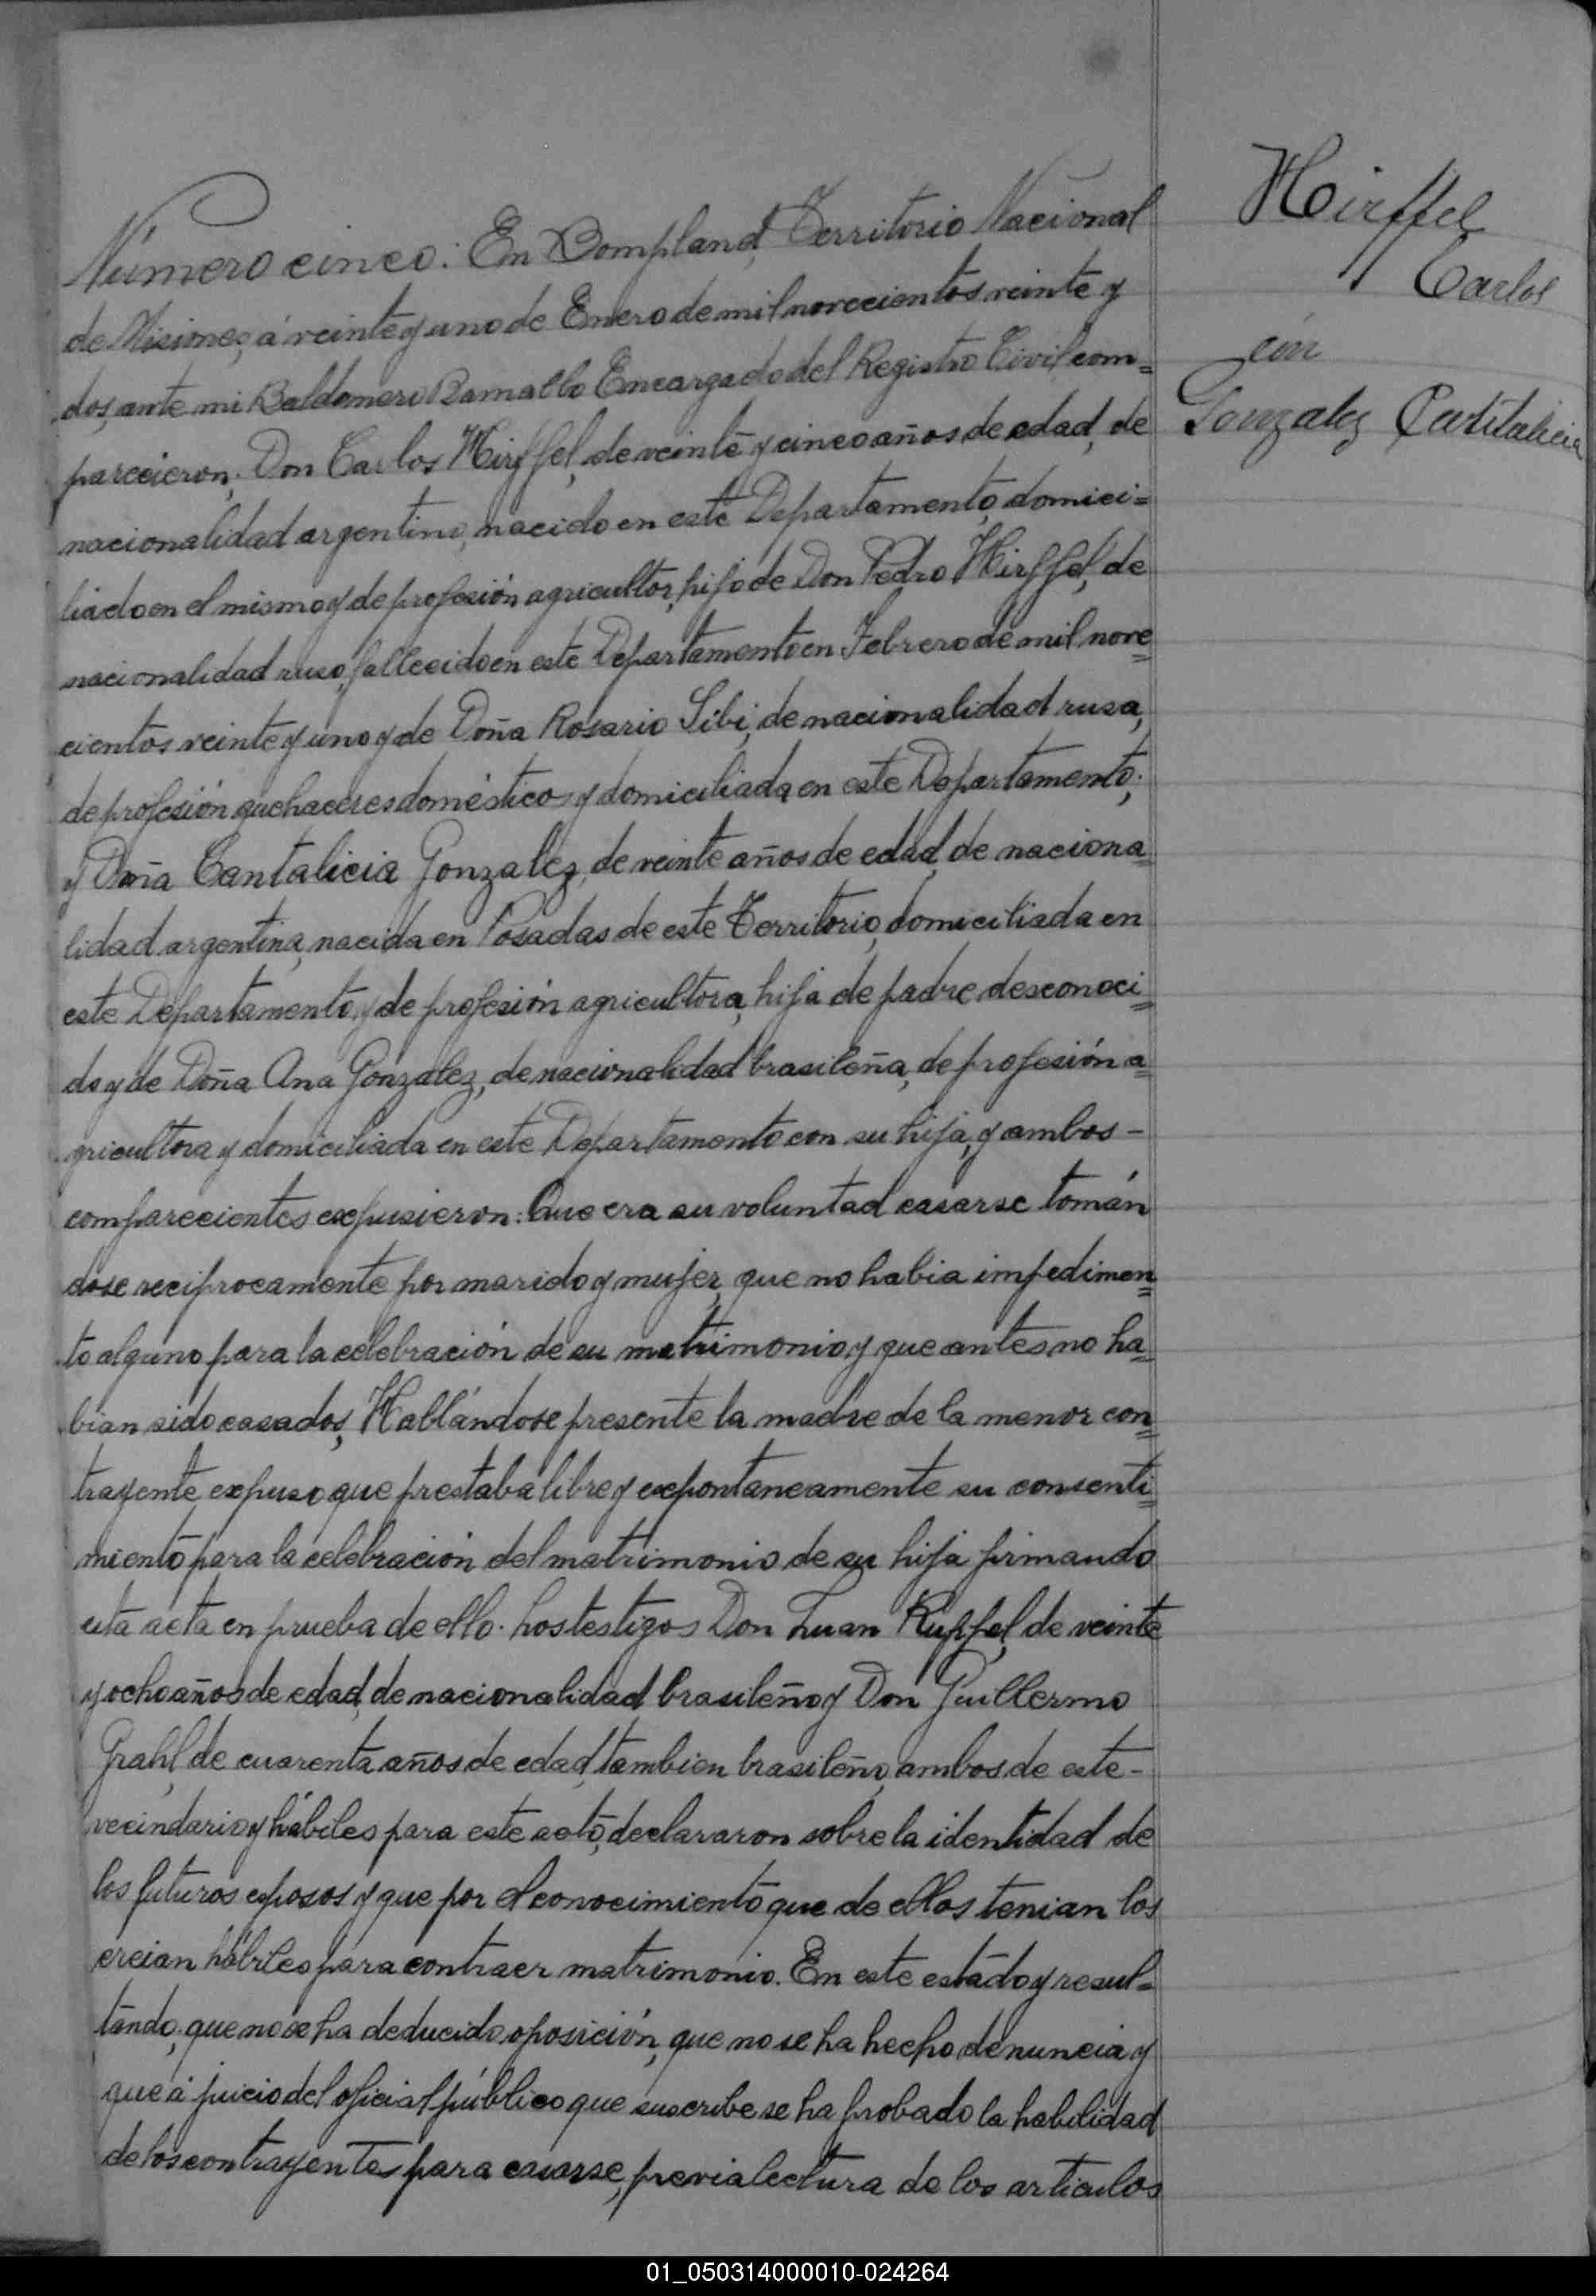 Número cinco: En Bompland, Territorio Nacional
de Misiones, á veinte y uno de Enero de mil novecientos veinte y
dos, ante mi Baldomero Ramallo Encargado del Registro Civil com=
parecieron: Don Carlos Hirffel, de veinte y cinco años de edad, de
nacionalidad argentino, nacido en este Departamento, domici=
liado en el mismo y de profesión agricultor, hijo de Don Pedro Hirffel, de
nacionalidad ruso, fallecido en este Departamento en Febrero de mil nove=
cientos veinte y uno y de Doña Rosario Sibi, de nacionalidad rusa,
de profesión quehaceres doméstico y domiciliada en este Departamento;
y Doña Cantalicia Gonzalez, de veinte años de edad, de naciona=
lidad argentina, nacida en Posadas de este Territorio, domiciliada en
este Departamento y de profesión agricultora, hija de padre desconoci=
do y de Doña Ana Gonzalez, de nacionalidad brasileña, de profesión a=
gricultora y domiciliada en este Departamento con su hija, y ambos -
comparecientes expusieron: Que era su voluntad casarse tomán
dose reciprocamente por marido y mujer, que no habia impedimen=
to alguno para la celebración de su matrimonio y que antes no ha=
bian sido casados, Hallándose presente la madre de la menor con=
trayente expuso que prestaba libre y expontaneamente su consenti=
miento para la celebración del matrimonio de su hija firmando
esta acta en prueba de ello. Los testigos Don Juan Ruffel, de veinte
y ocho años de edad, de nacionalidad brasileño y Don Guillermo
Grahl, de cuarenta años de edad, tambien brasileño, ambos de este -
vecindario y hábiles para este acto, declararon sobre la identidad de
los futuros esposos y que por el conocimiento que de ellos tenian los
creian hábiles para contraer matrimonio. En este estado y resul=
tando, que no se ha deducido oposición, que no se ha hecho denuncia y
que á juicio del oficial público que suscribe se ha probado la habilidad
de los contrayentes para casarse, previa lectura de los articulos
Hirffel
Carlos
con
Gonzalez Cantalicia
01_050314000010-024264